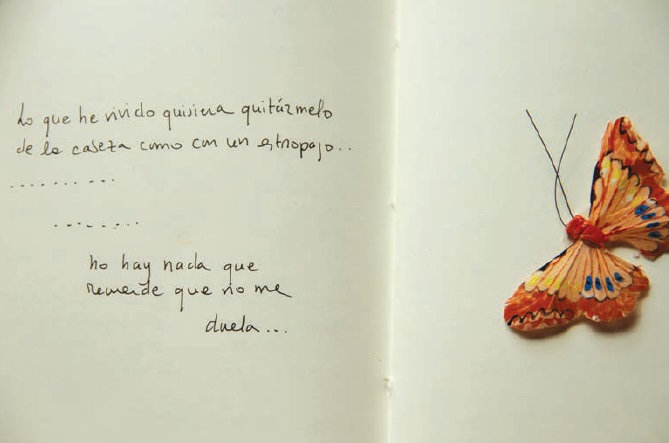 Lo que he vivido quisiera quitármelo
de la cabeza como con un estropajo..
. . . . . . . . . .
. . . . . . . . .
no hay nada que
recuerde que no me
duela...